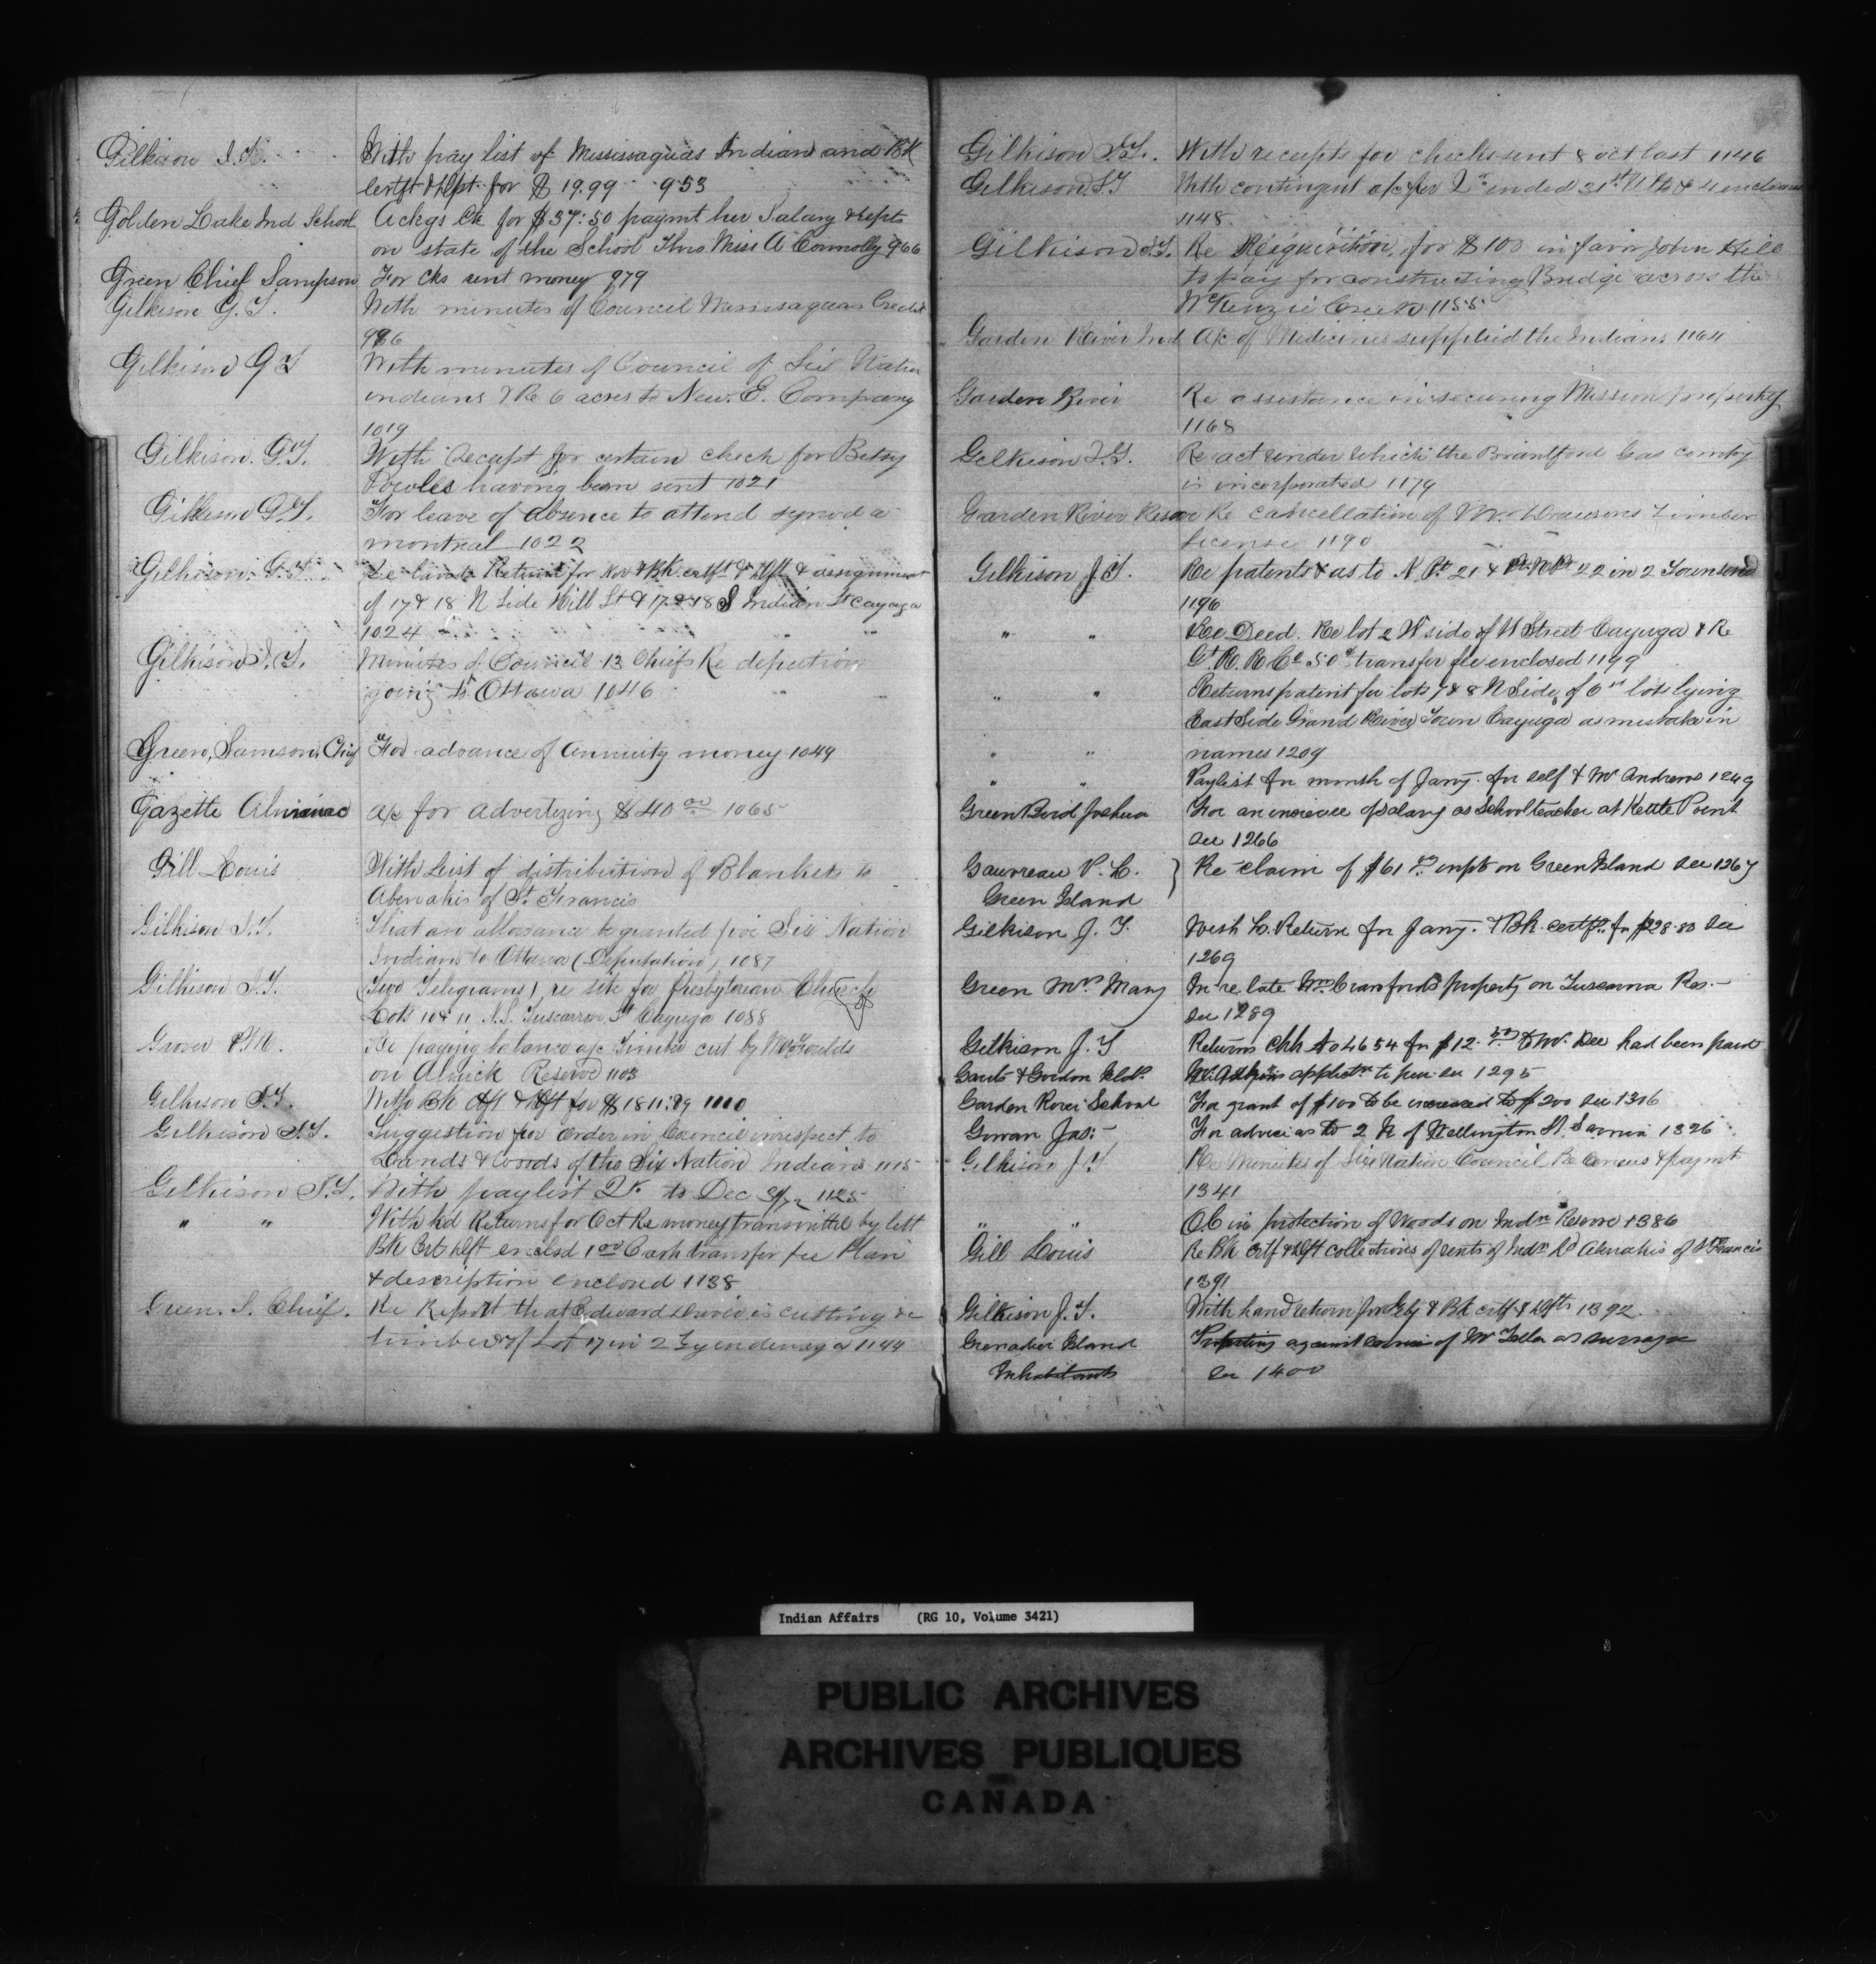 Gilkison J. T. With pay list of Mississaguas Indians and Bk
certft & dft for $19.99 953
Golden Lake Ind School Ackgs Ck for $37:50 paymt her Salary & repts
on state of the School Thro Miss A Connolly 966
Green Chief Sampson For Cks sent money 979
Gilkison G. T. With minutes of Council Mississaguas Credit
996
Gilkison G T With minutes of Council of Six Nation
indians & Re 6 acres to New. E. Company
1019
Gilkison. G. T. With Receipt for certain check for Betsy
Powles having been sent 1021
Gilkison G. T. For leave of absence to attend synod a
montreal 1022
Gilkison. G. T. Re land Return for Nov & Bk certft & dft & assignment
of 17 & 18 N Side Hill St & 17 & 18 S Indian St Cayuga
1024
Gilkison J. T. Minutes of Council 13 Chiefs Re deputtion
going to Ottawa 1046
Green, Samson, Chief For advance of Annuity money 1049
Gazette Almanac a/c for advertizing $40 00 1065
Gill Louis With List of distribution of Blankets to
Abenakis of St. Francis
Gilkison J. T. That an allowance be granted five Six Nation
Indians to Ottawa (Deputation) 1087
Gilkison J. T. (Two Telegrams) re site for Presbyterian Church
Lots 10 & 11 N. S. Tuscarrora St Cayuga 1088
Grover P. M. Re paying balance a/c Timber cut by McGoulds
on Alwick Reserve 1103
Gilkison J. T. With Bk dft & dft for $1811:89 1110
Gilkison J. T. Suggestion for Order in Council in respect to
Lands & Woods of the Six Nation Indians 1115
Gilkison J. T. With paylist Qr. to Dec 1125
" " With Ld Returns for Oct Re money transmitted by lett
Bk Crt dft enclsd 1 00 Cash transfer fee Plan
& description enclosed 1138
Green. S. Chief. Re Report that Edward is cutting
timber off Lot 17 in 2 Tyendenaga 1144
Gilkison J. T. With receipts for checks sent 8 oct last 1146
Gilkison J. T With contingent a/c for Qr ended 31st Ulto & 4 enclosures
1148
Gilkison J. T. Re Requisition, for $100 in favor John Hill
to pay for constructing Bridge across the
McKenzie Creek 1155
Garden River Ind A/c of Medicines supplied the Indians 1164
Garden River Re assistance in securing Mission property
1168
Gilkison J. T. Re act under which the Brantford Gas compy
is incorporated 1179
Garden River Reserve Re cancellation of Mr Dawsons Timber
License 1190
Gilkison J. T. Re patents & as to N Pt 21 & Pt N Pt 22 in 2 Townsend
1196
" " Re Deed. Re lot 2 W side of W Street Cayuga & Re
Gt. R. R Co 50c transfer fee enclosed 1199
" " Returns patent for lots 7 & 8 N Side of 6th lots lying
East Side Grand River Town Cayuga as mistake in
" " names 1209
" " Paylist for month of Jany. for self & Mr Andrews 1249
Green Bird Joshua For an increase of salary as school teacher at Kettle Point
See 1266
Gauvreau P. L. } Re claim of $61 on Green Island See 1267
Green Island
Gilkison J. T. With L. Return for Jany. & Bk. certft. for $228.80 See
1269
Green Mrs Mary In re late Mr Crawford's property on Tuscarora Res.
See 1289
Gilkison J. T Returns Chk No 4654 for $12 Mr. Dee had been paid
Gaults & Gordon applictn to See 1295
Garden River School For grant of $100 to be increased to $200 See 1306
Gowan Jas: For advice as to 2 N of Wellington St Sarnia 1326
Gilkison J. T Re Minutes of Six Nation Council Re Census & paymt
1341
" " O. C in protection of Woods on Indn Reserve 1386
Gill Louis Re Bk crtf & dft collections of rents of Indn Ld Abenakis of St Francis
1391
Gilkison J. T. With land return for Feby & Bk crtf & dfts 1392
Grenadier Island Protesting against of Mr as
Inhabitants See 1400
Indian Affairs (RG 10, Volume 3421)
PUBLIC ARCHIVES
ARCHIVES PUBLIQUES
CANADA